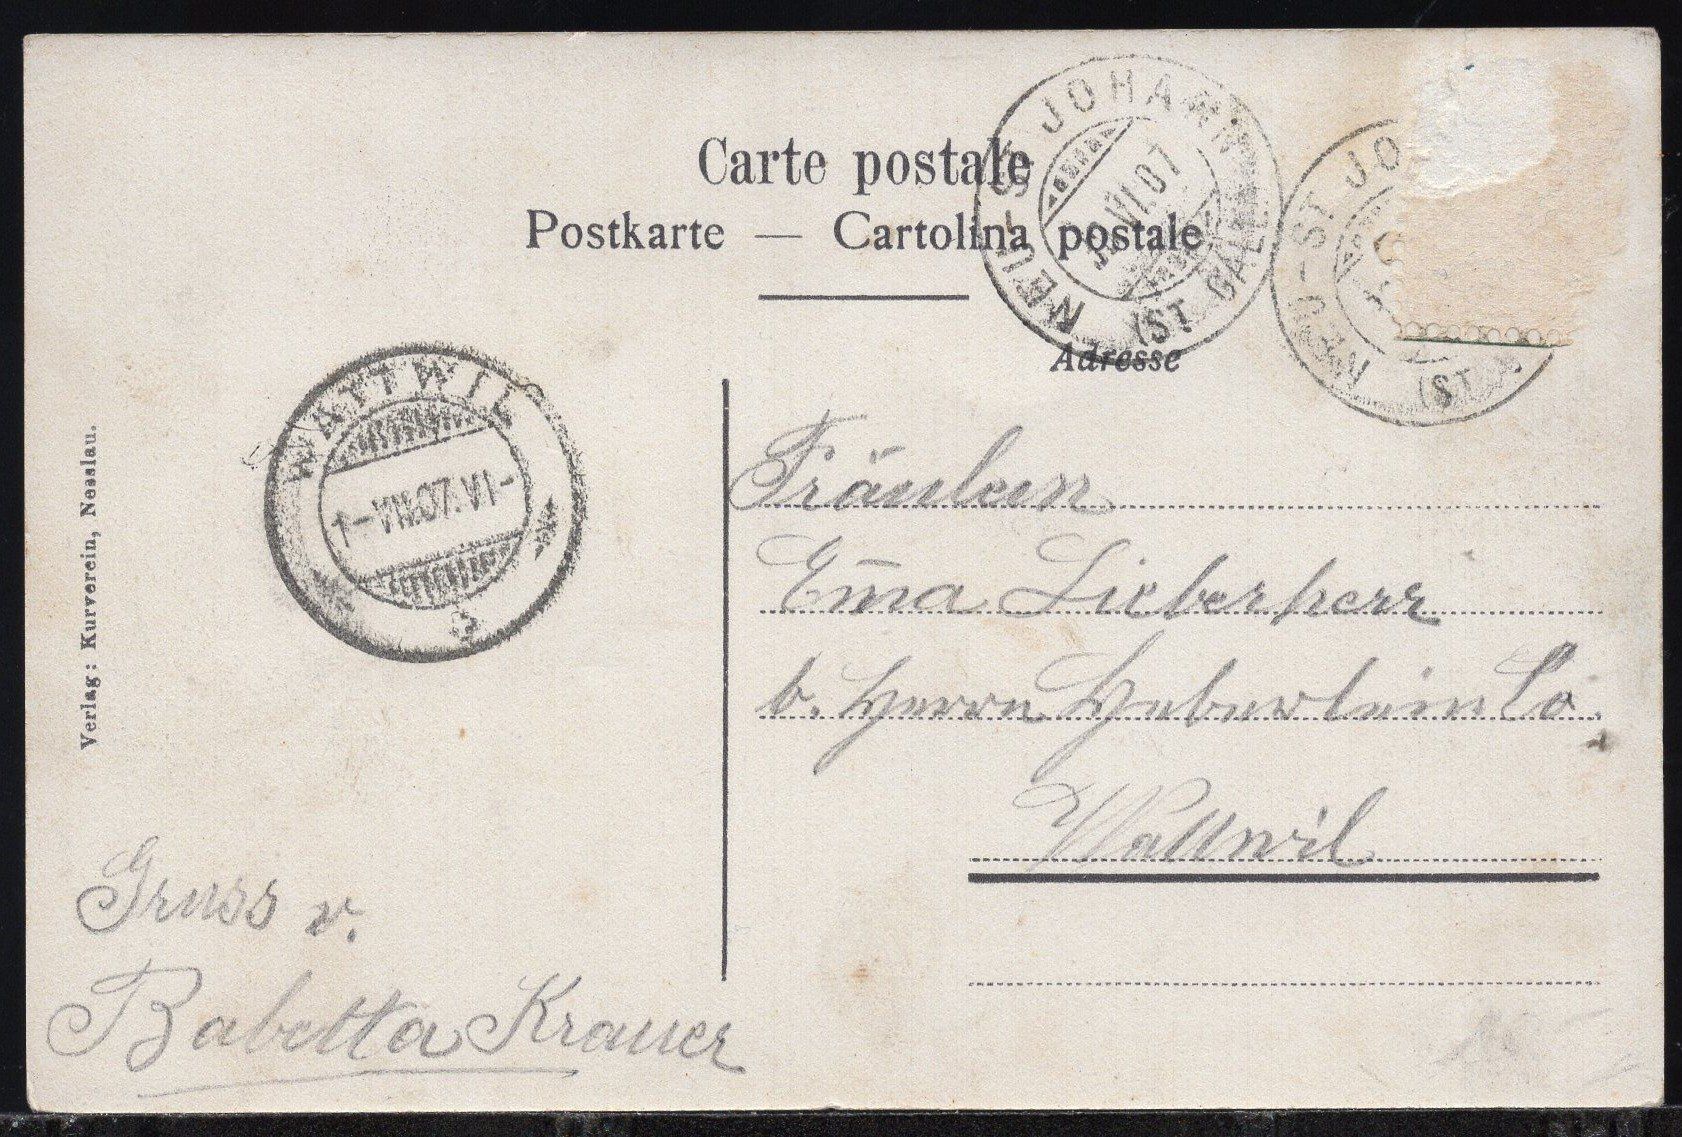 Carte postale
Postkarte — Cartolina postale
NEU-ST. JOHANN
30.VI.07
(ST. GALL
NEU-ST. JO
(ST.
Adresse
WATTWIL
1-VII.07.VI-
Verlag: Kurverein, Nesslau.
Fräulein
Em̄a Lieberherr
b. Herrn Heberlein Co.
Wattwil
Gruss v.
Babetta Krauer